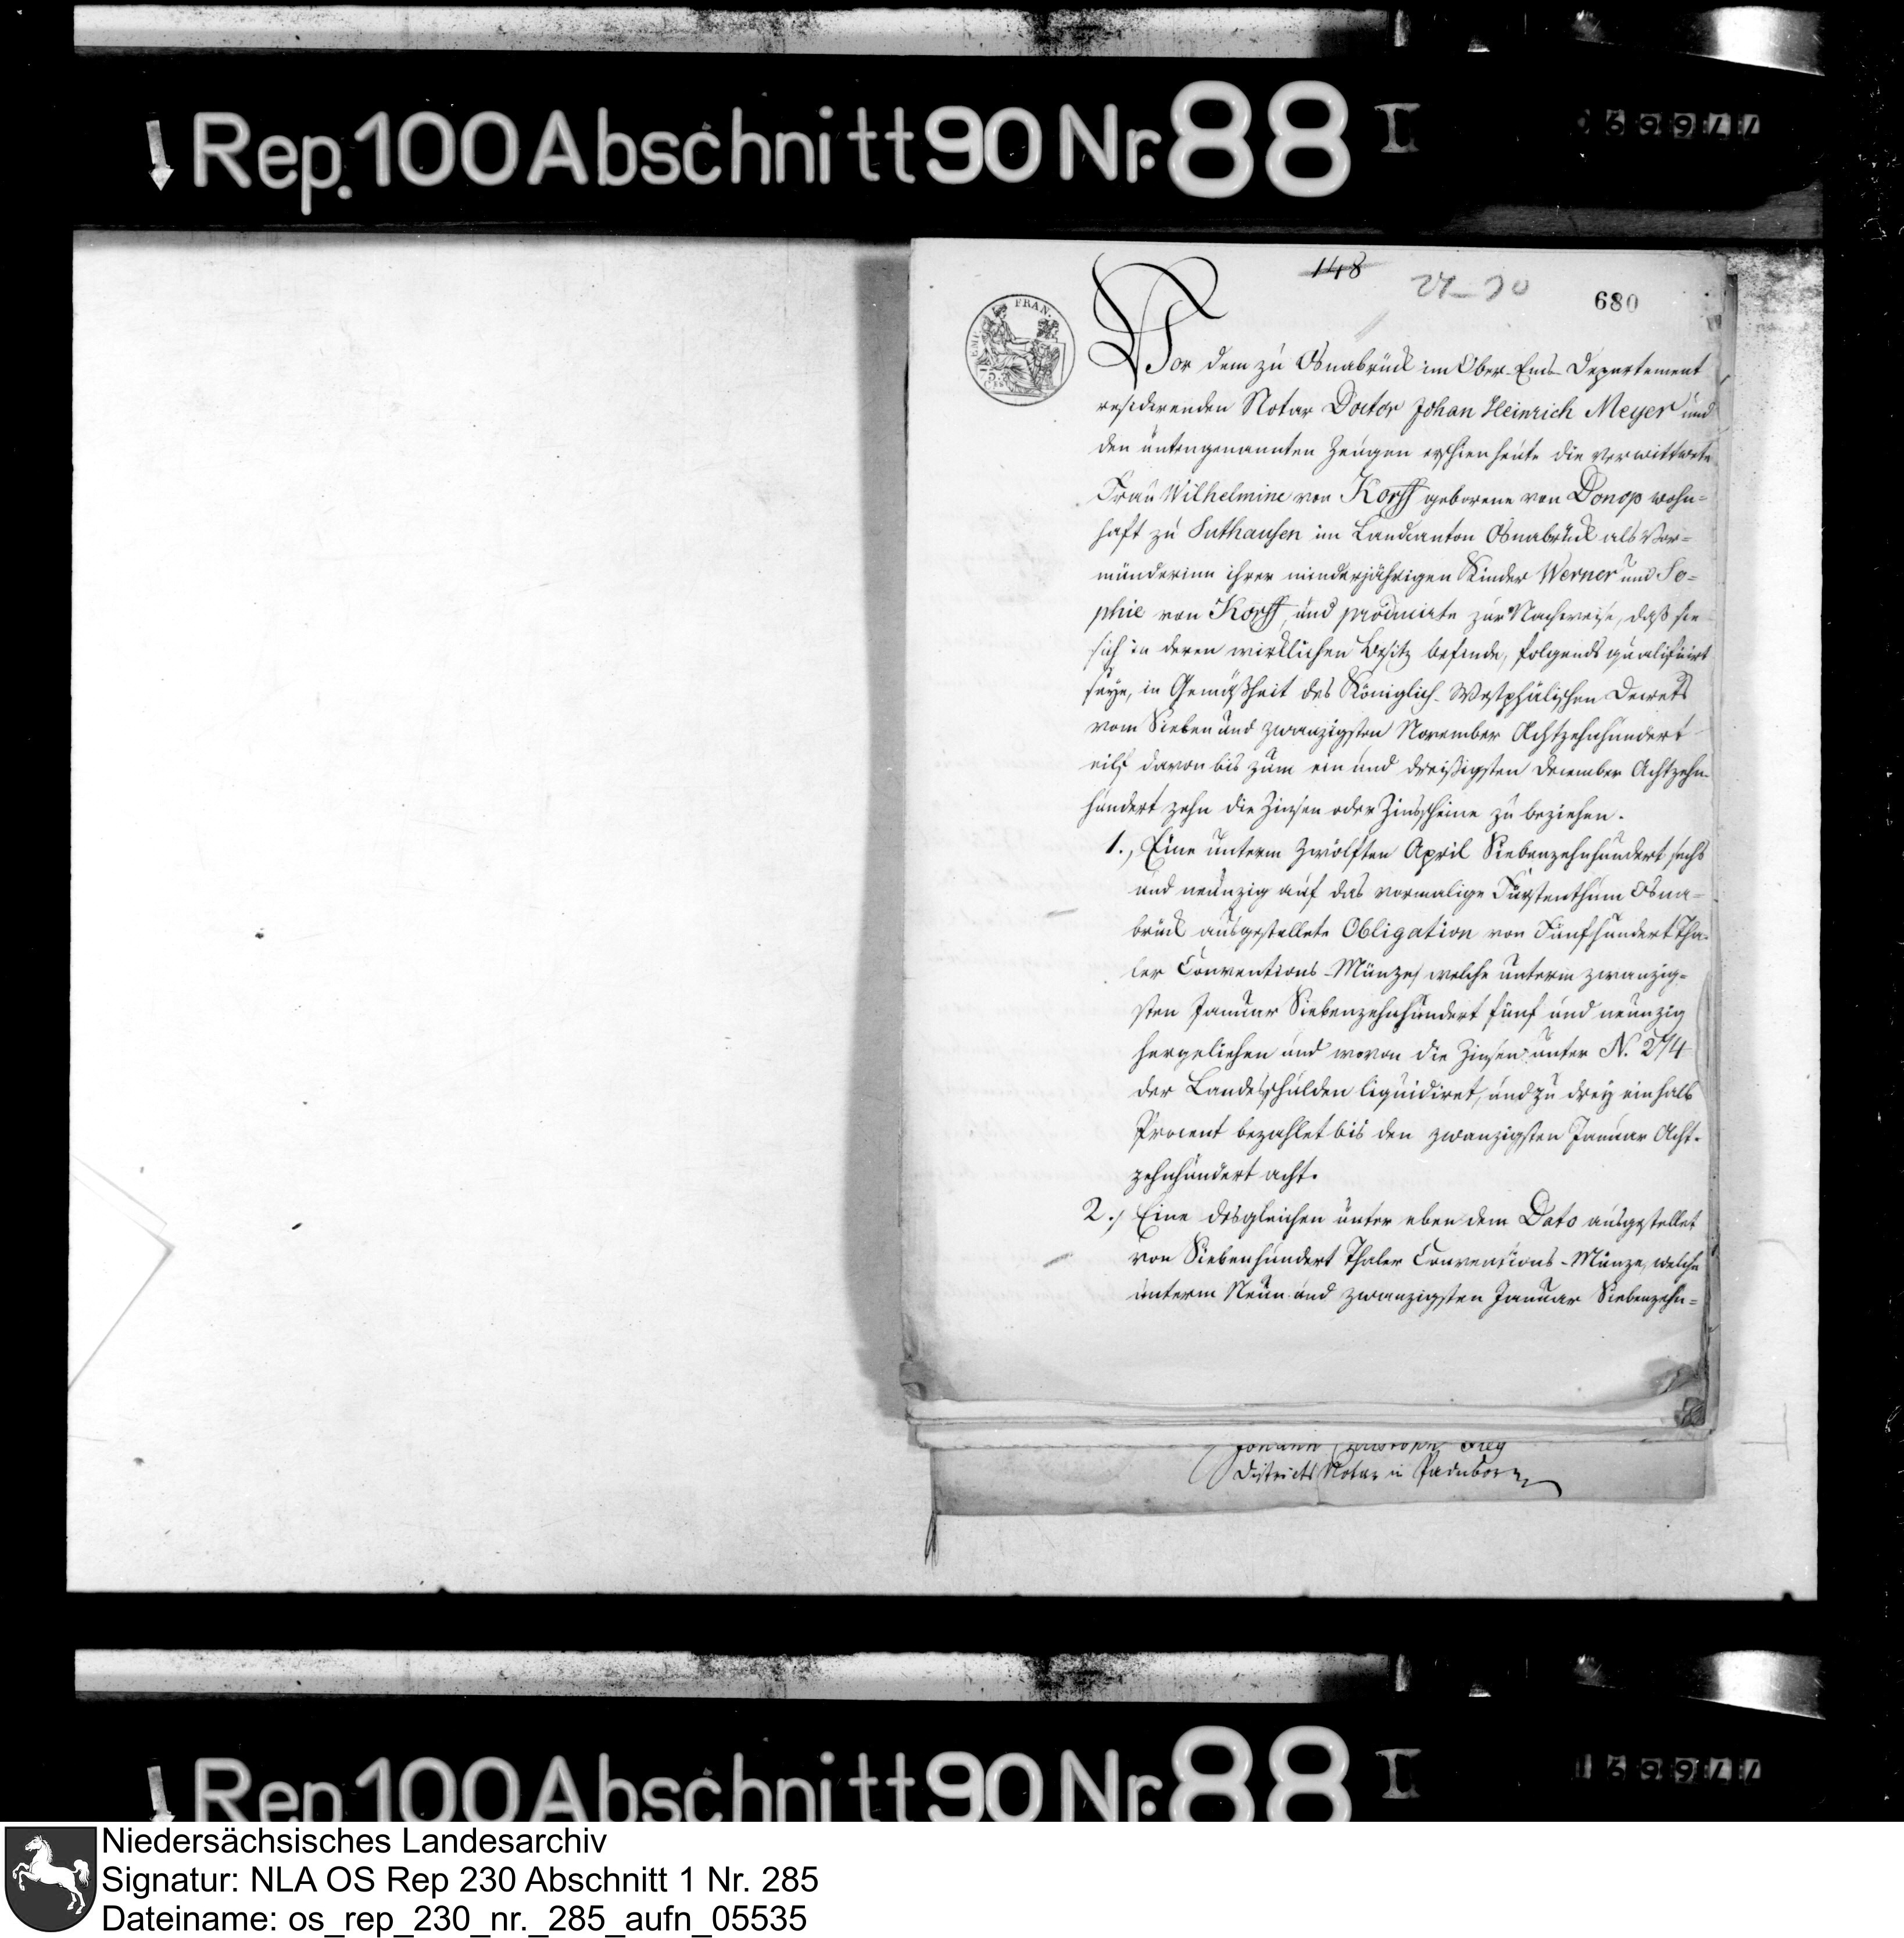 Rep. 100 Abschnitt 90 Nr. 88 I
69977
148
680
EMP. FRAN.
Vor dem zu Osnabrück im Ober-Ems-Departement
residirenden Notar Doctor Johan Heinrich Meyer und
den untengenannten Zeugen erschien heute die verwittwete
Frau Wilhelmine von Korff geborene von Donop wohn=
haft zu Suthausen im Landcanton Osnabrück als Vor=
münderinn ihrer minderjährigen Kinder Werner und So=
phie von Korff, und producirte zur Nachweise, daß sie
sich in deren wirklichen Besitz befinde, folgends qualificirt
seye, in Gemäßheit des Königlich-Westphälischen Decrets
vom Sieben und zwanzigsten November Achtzehnhundert
eilf davon bis zum ein und dreißigsten December Achtzehn=
hundert zehn die Zinsen oder Zinsscheine zu beziehen.
1., Eine unterm Zwölften April Siebenzehnhundert sechs
und neunzig auf das vormalige Fürstenthum Osna=
brück ausgestellete Obligation von Fünfhundert Tha=
ler Conventions-Münze, welche unterm zwanzig=
sten Januar Siebenzehnhundert fünf und neunzig
hergeliehen und wovon die Zinsen unter N. 274
der Landesschulden liquidiret, und zu drey einhalb
Procent bezahlet bis den zwanzigsten Januar Acht=
zehnhundert acht.
2., Eine desgleichen unter eben dem Dato ausgestellet
von Siebenhundert Thaler Conventions-Münze, welche
unterm Neun und zwanzigsten Januar Siebenzehn=
Johann Christoph
Districts Notar in Paderborn
Rep 100 Abschnitt 90 Nr. 88 I
69977
Niedersächsisches Landesarchiv
Signatur: NLA OS Rep 230 Abschnitt 1 Nr. 285
Dateiname: os_rep_230_nr._285_aufn_05535